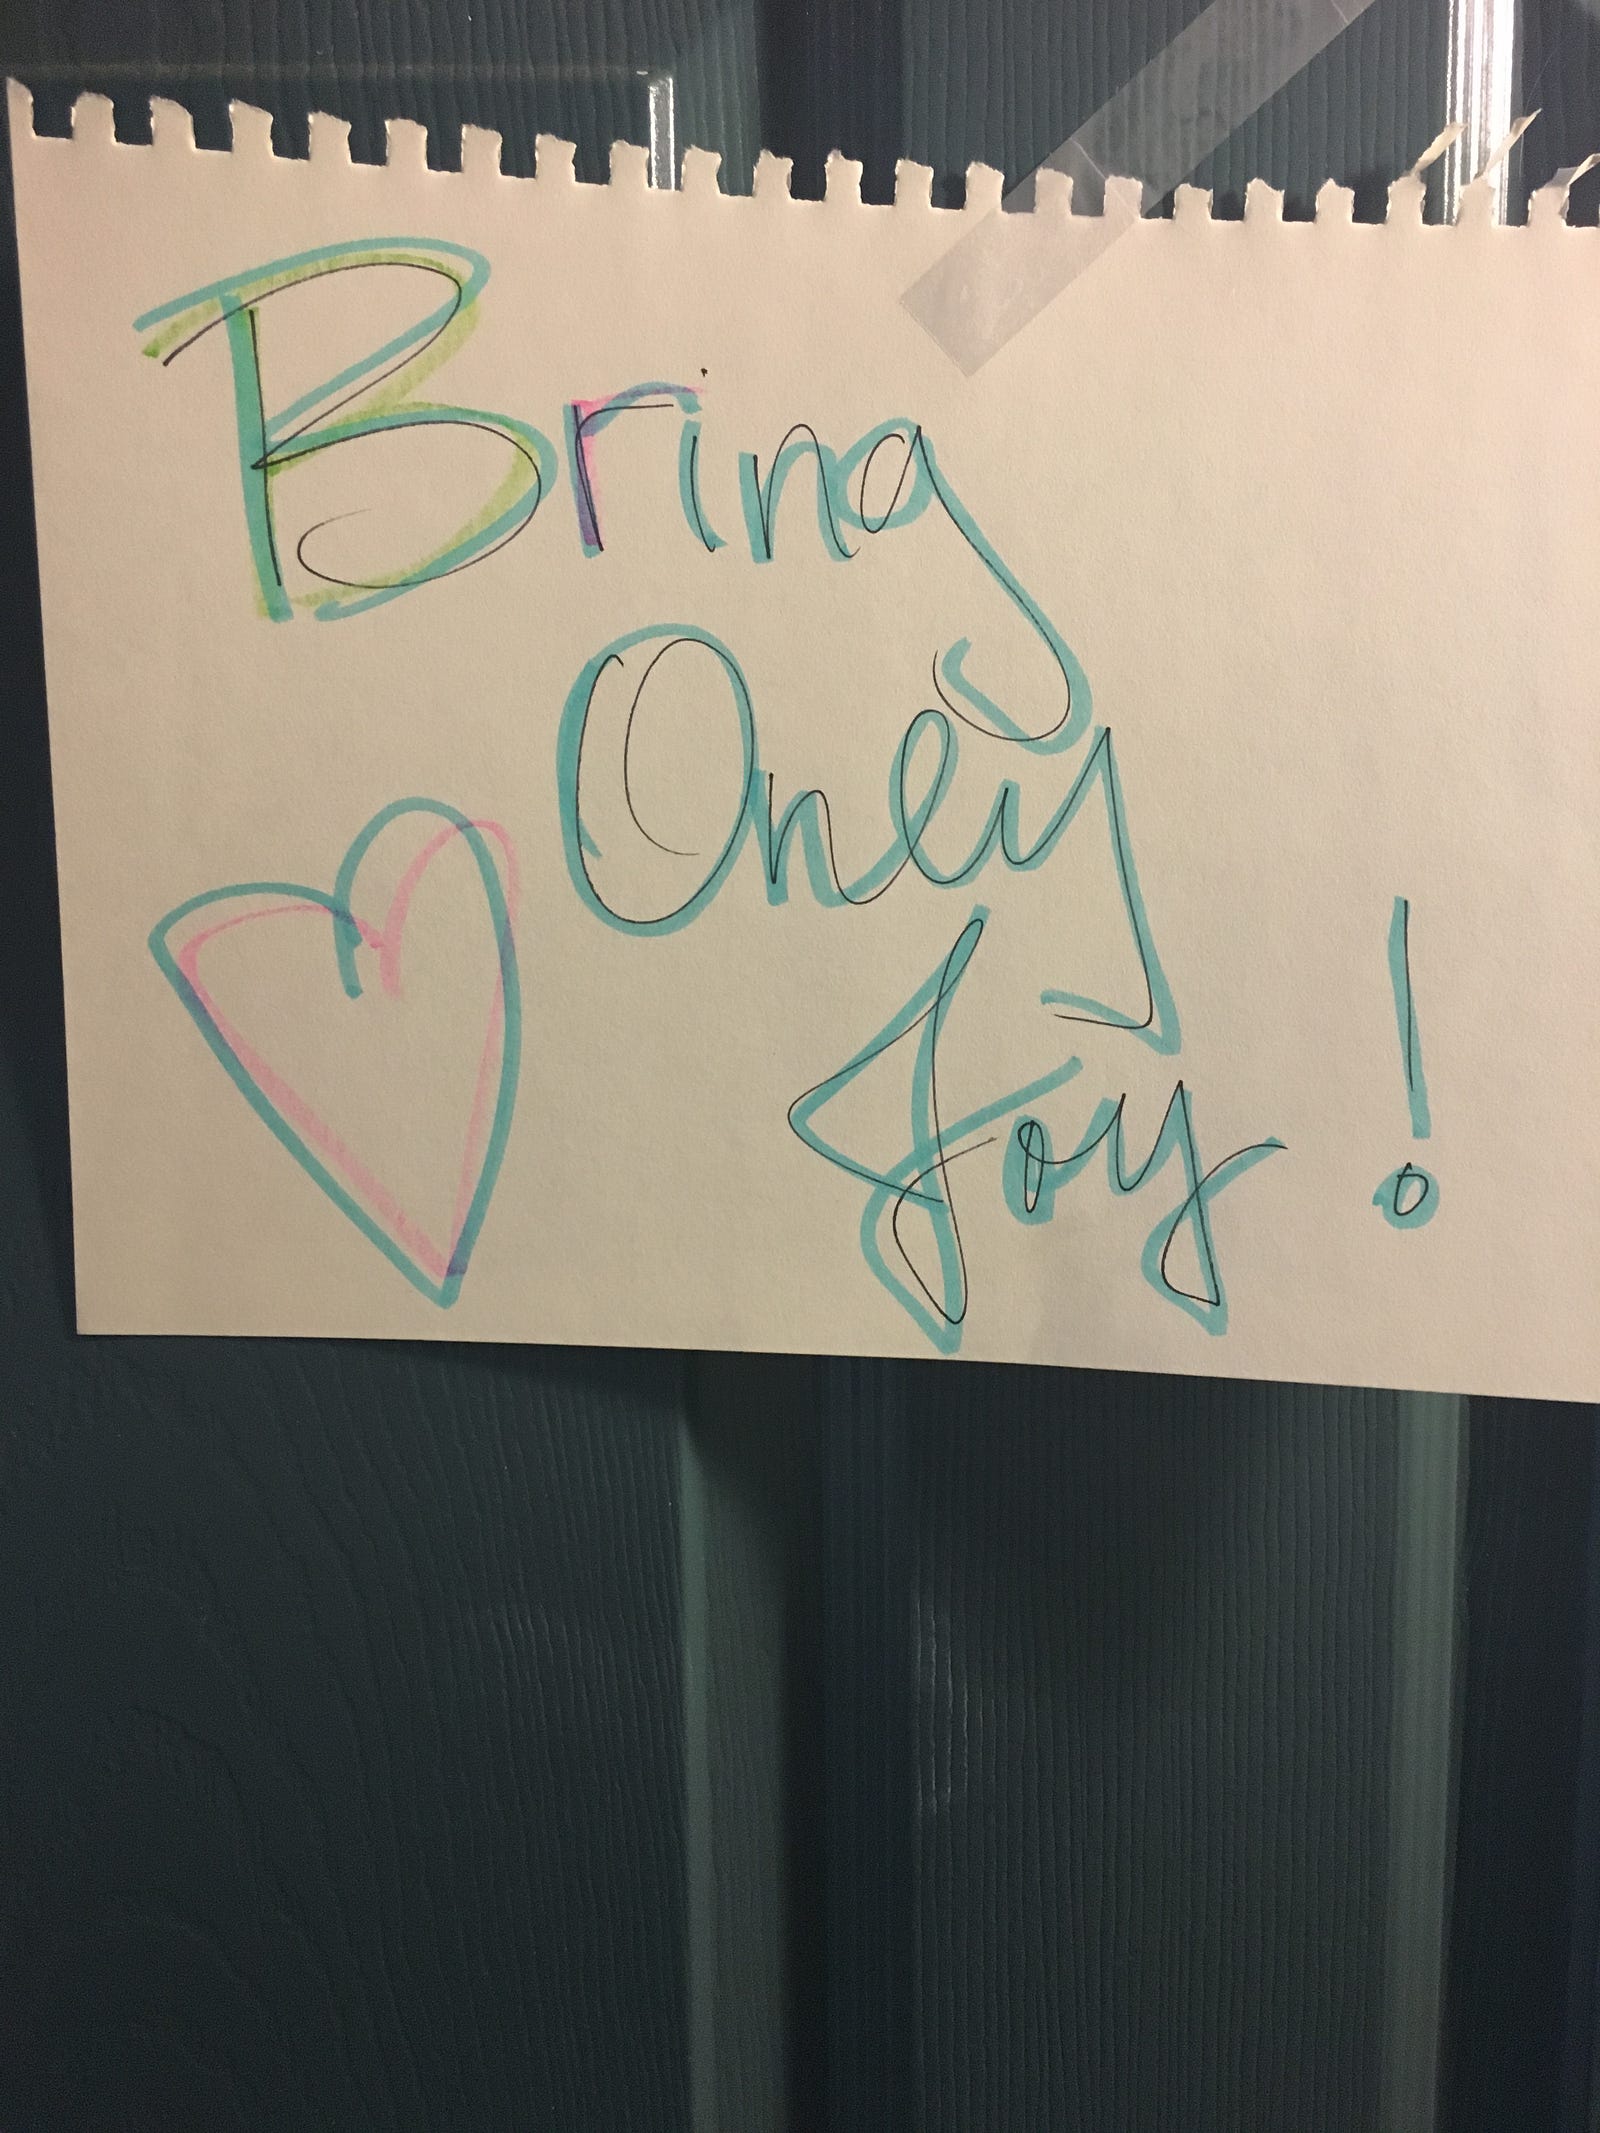 Bring
Only
Joy!